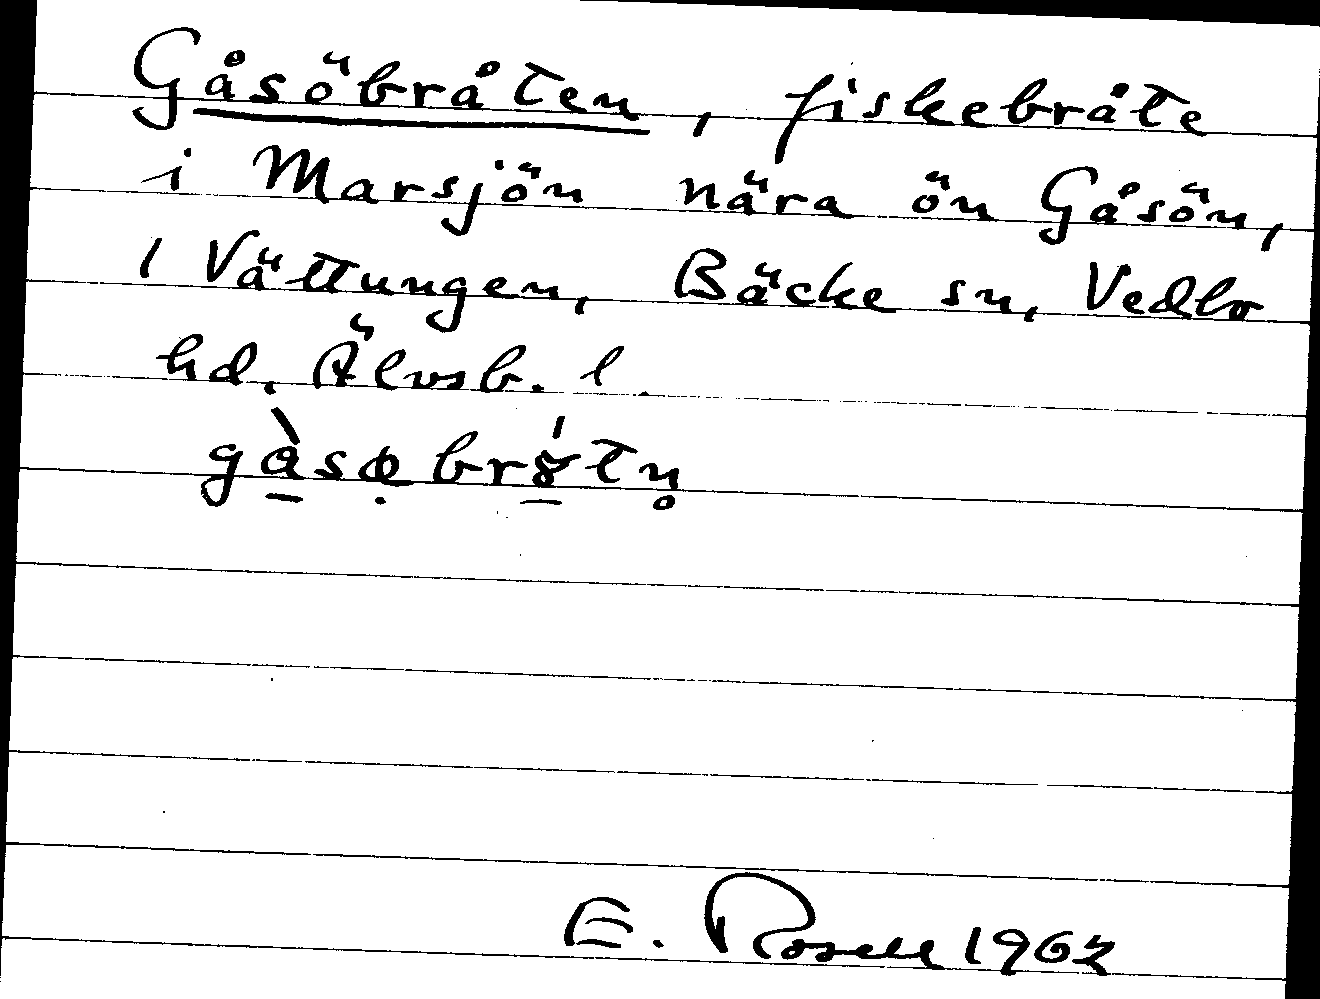 Gåsöbråten, fiskebråte
i Marsjön nära ön Gåsön,
1 Vättungen, Bäcke sn, Vedbo
hd. Älvsb. l.
E. Rosell 1962